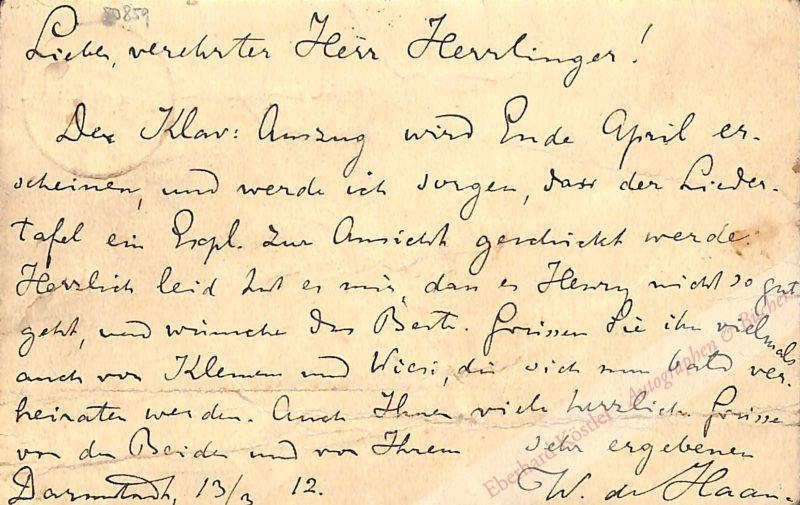 80859
Lieber, verehrter Herr Herrlinger!
Der Klav: Auszug wird Ende April er-
scheinen, und werde ich sorgen, dass der Lieder-
tafel ein Expl. zur Ansicht geschickt werde.
Herzlich leid tut es mir, dass es Henry nicht so gut
geht, und wünsche das Beste. Grüssen Sie ihn vielmals
auch von Klemens und die sich nun bald ver-
heiraten werden. Auch Ihnen viele herzliche Grüsse
von den Beiden und von Ihrem sehr ergebenen
Darmstadt, 13/3 12. W. de Haan.
Eberhard Köstler Autographen & Bücher